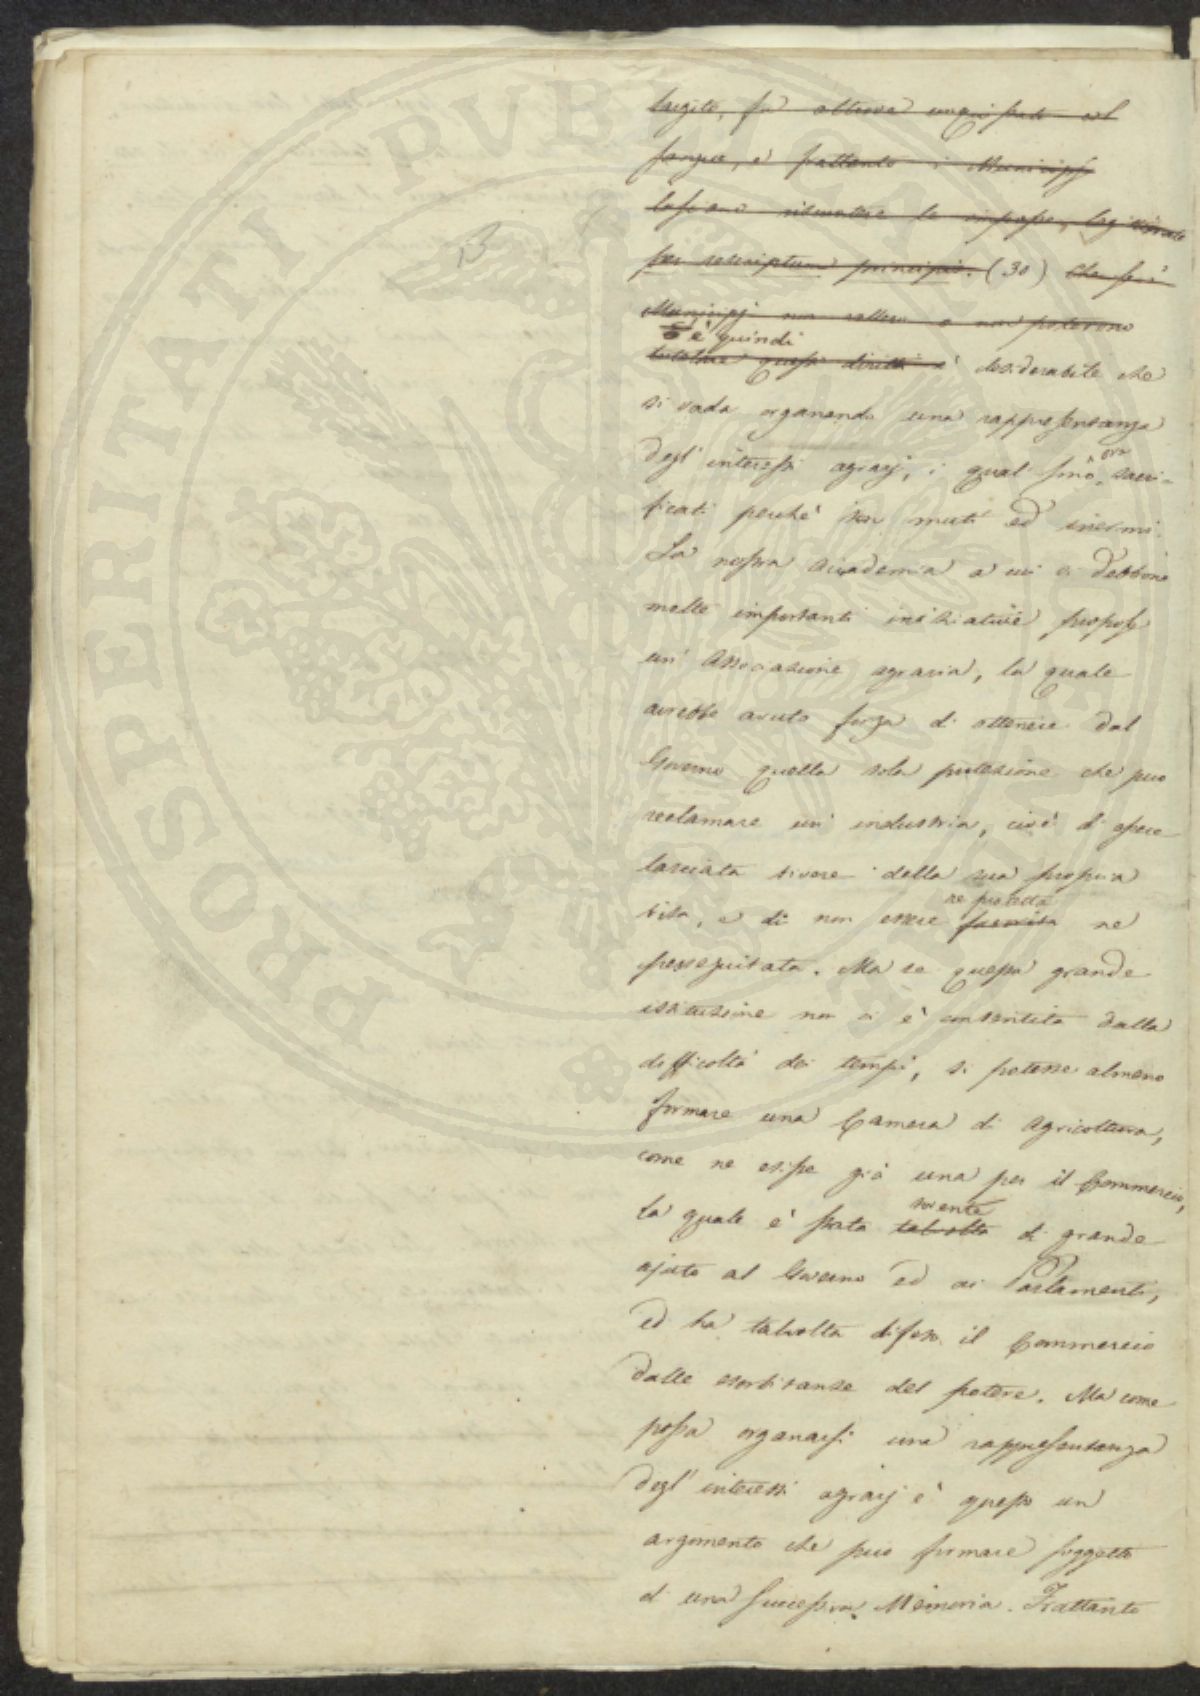 largito, fu ottenuto
sangue, e frattanto i Municipj
lasciano
per rescriptum principis. (30) Che se i
Municipj non vollero o non poterono
È quindi
tutelare questi diritti è desiderabile che
si vada organando una rappresentanza
degl'interessi agrarj, i quali sino ora sacri-
ficati perchè muti ed inermi.
La nostra Accademia a cui si debbono
molte importanti iniziative propose
un'Associazione agraria, la quale
avrebbe avuto forza di ottenere dal
Governo quella sola protezione che può
reclamare un'industria, cioè di essere
lasciata vivere della sua propria
vita, e di non essere favorita nè protetta nè
perseguitata. Ma se questa grande
istituzione non ci è consentita dalla
difficoltà dei tempi, si potesse almeno
formare una Camera di Agricoltura,
come ne esiste già una per il Commercio,
la quale è stata talvolta sovente di grande
ajuto al Governo ed ai Parlamenti,
ed ha talvolta difeso il Commercio
dalle esorbitanze del potere. Ma come
possa organarsi una rappresentanza
degl'interessi agrarj è questo un
argomento che può formare soggetto
di una successiva Memoria. Frattanto
PROSPERITATI PUBLICAE AUGENDAE